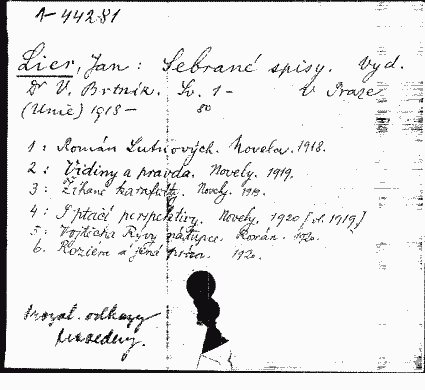 1-44281
Lier, Jan: Sebrané spisy. Vyd.
Dr V. Brtník. Sv. 1- V Praze
(Unie) 1918- 8°
1: Román Lutnových. Novela. 1918.
2: Vidiny a pravda. Novely. 1919.
3: Žíhané karafiáty. Novely. 1919.
4: S ptačí perspektivy. Novely, 1920 [ob. 1919]
5: Vojtěcha Rývy nástupce. Román. 1920.
6. Roziéra a jiná próza. 1920.
odkazy
provedeny.